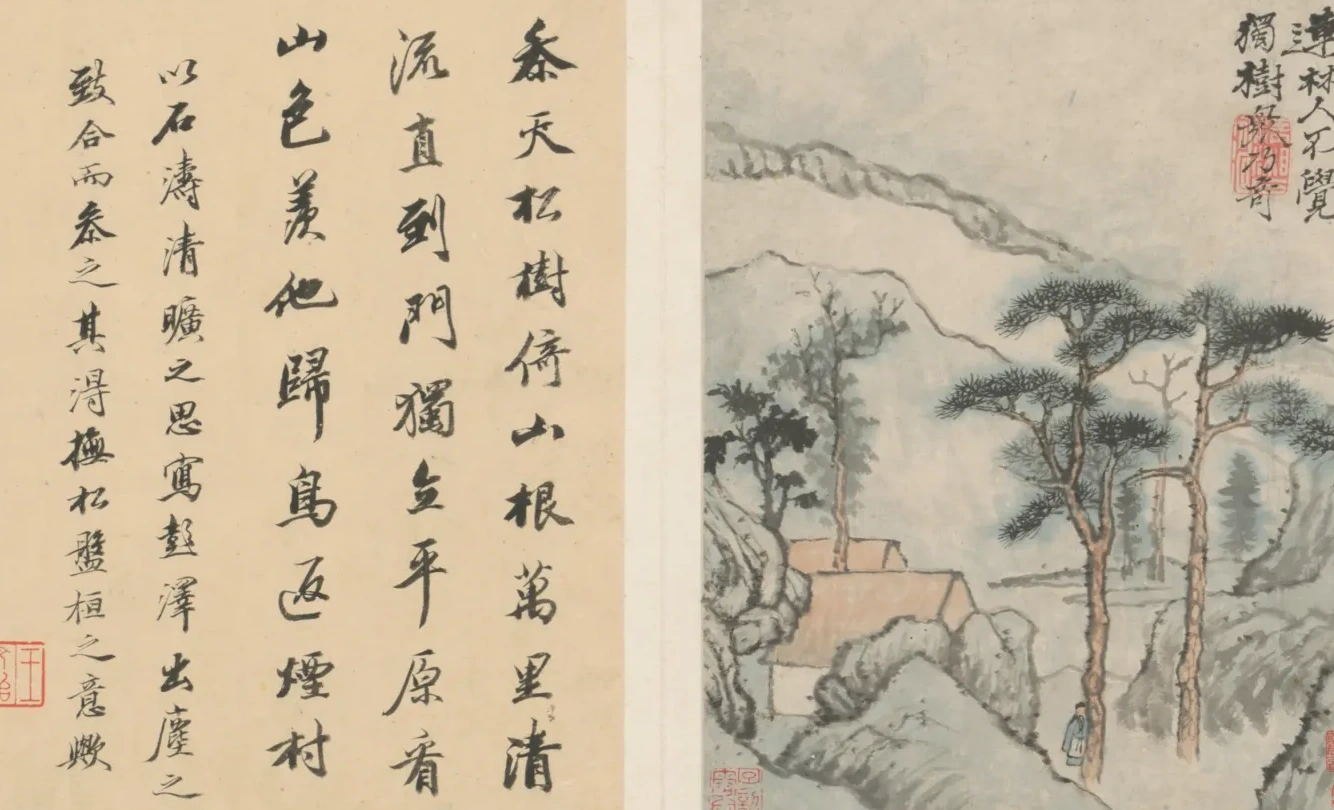 連林人不覺
獨樹衆乃奇
參天松樹倚山根萬里清
流直到門獨立平原看
山色羨他歸鳥返煙村
以石濤清曠之思寫彭澤出塵之
致合而參之其得撫松盤桓之意歟
王文治